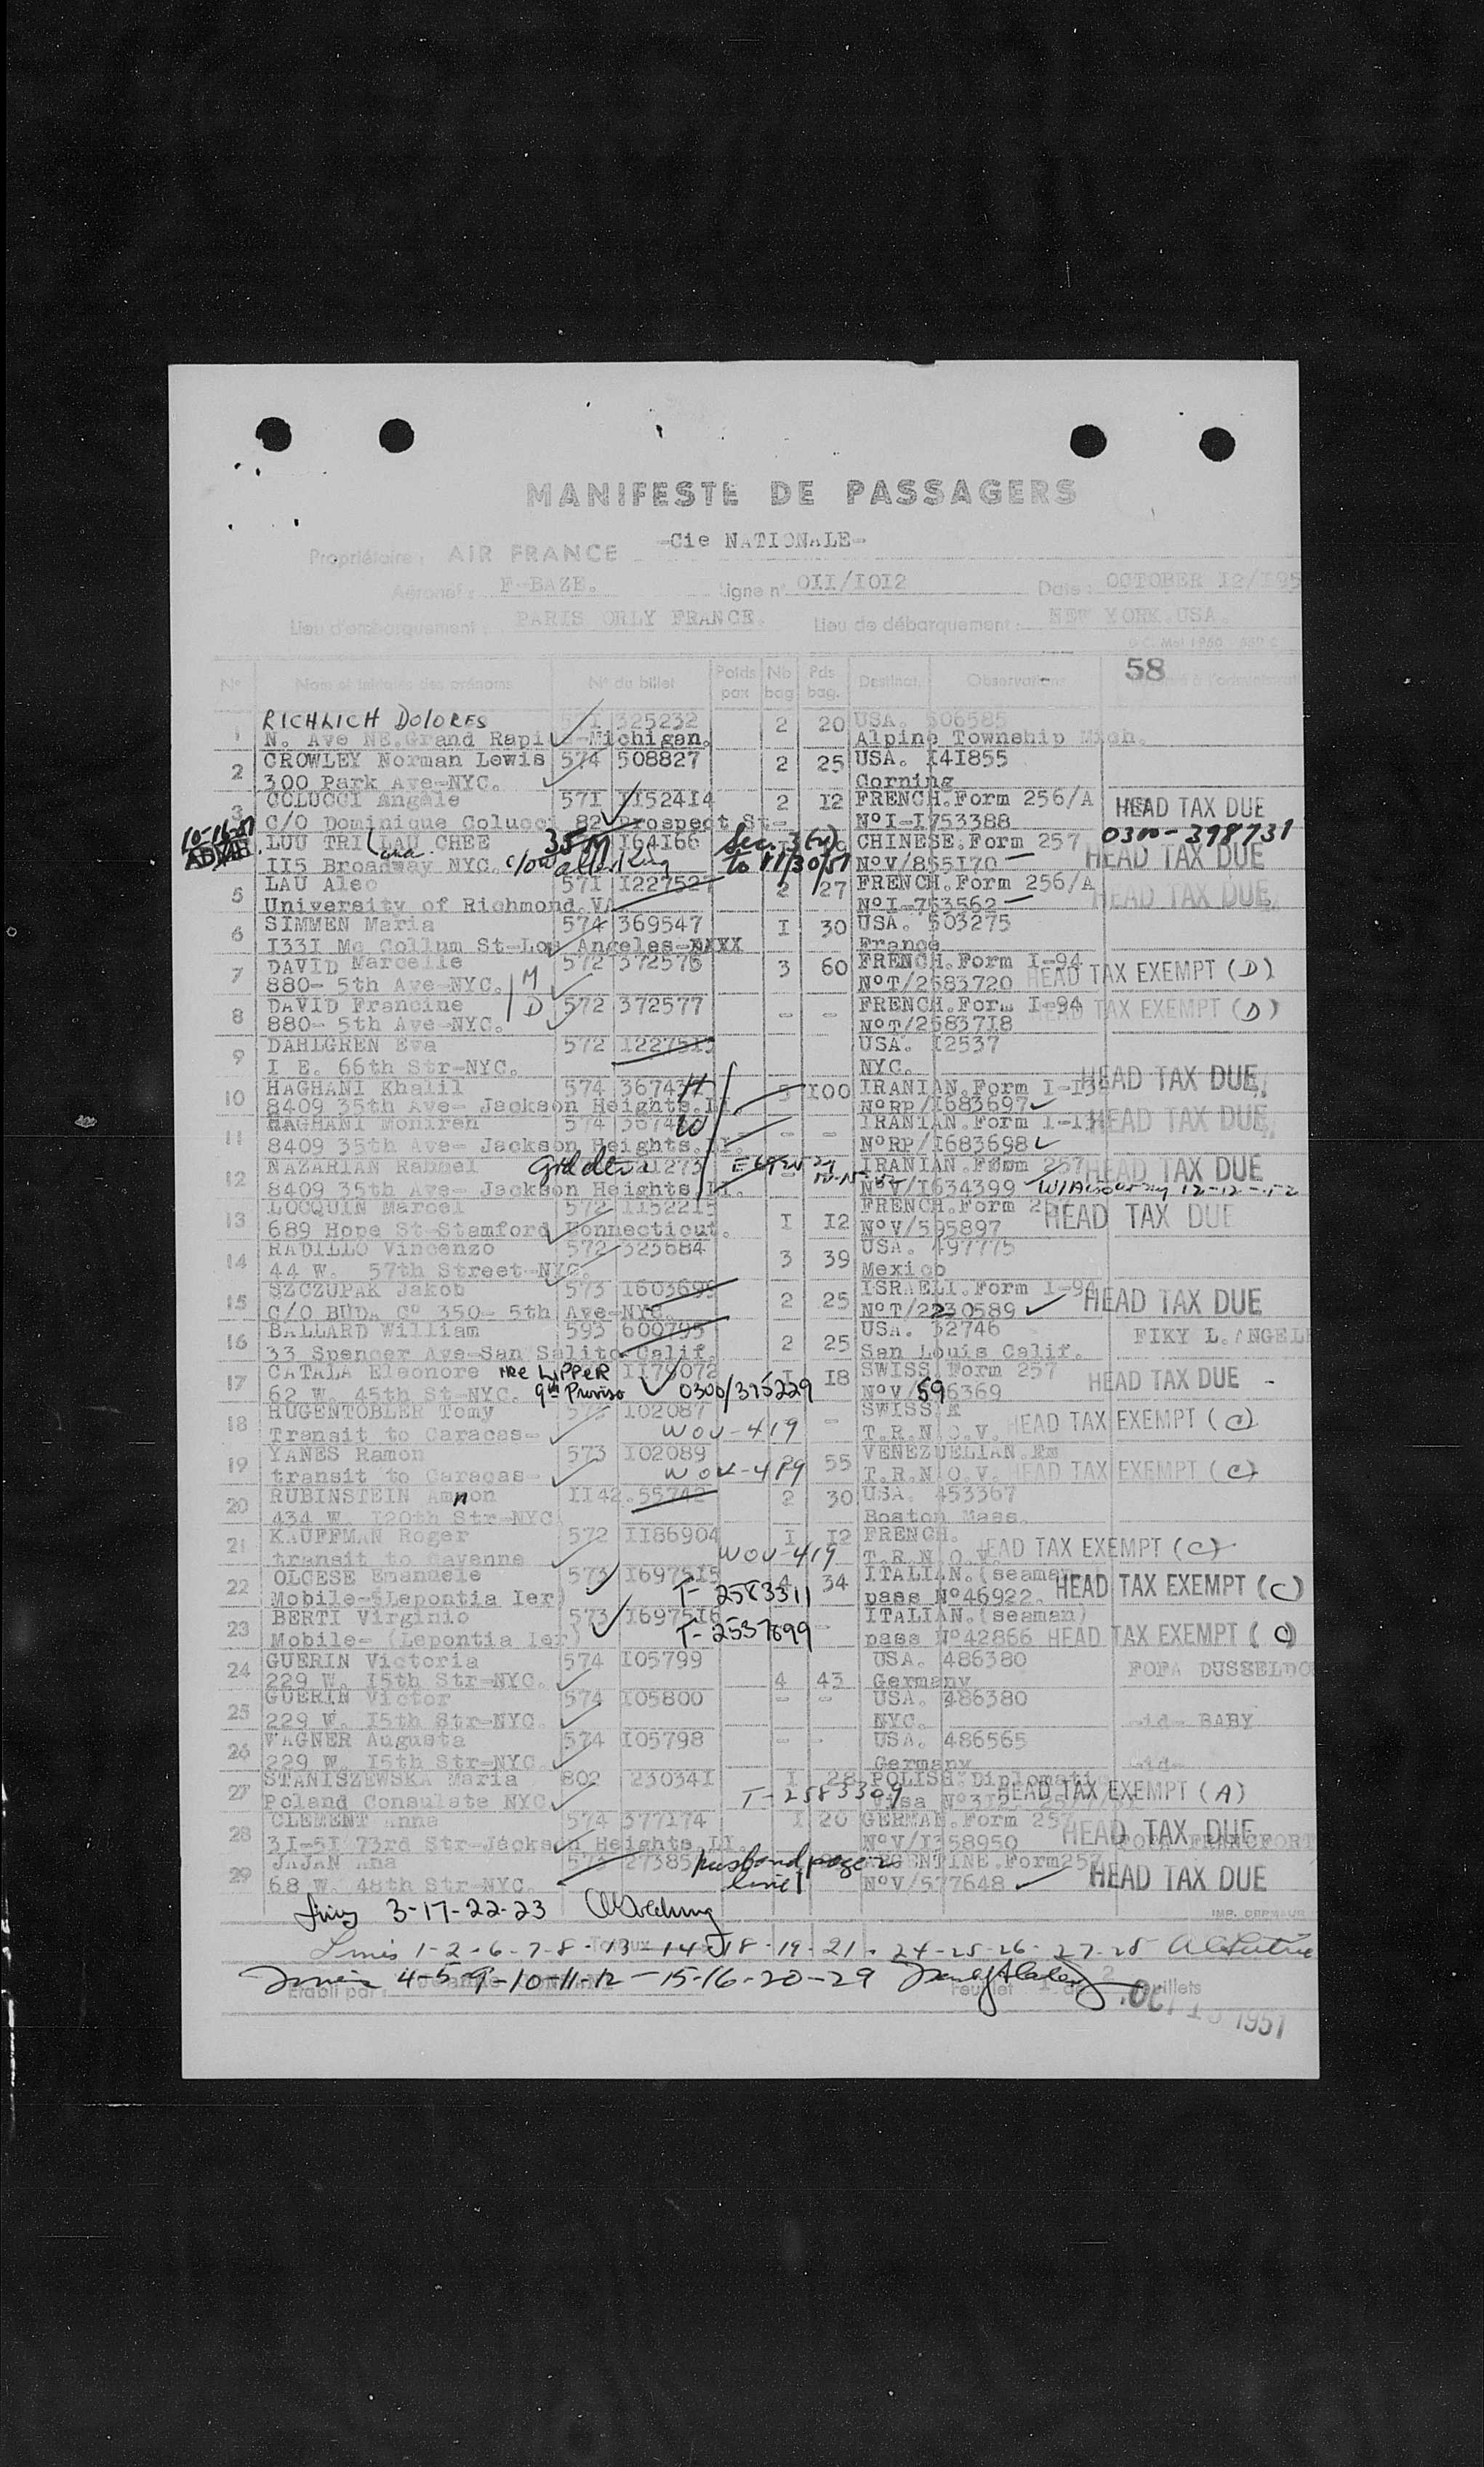 MANIFESTE DE PASSAGERS
-Cie NATIONALE-
Propriétaire : AIR FRANCE
Aéronef : F-BAZE. Ligne n° OII/IOI2 Date : OCTOBER I2/195
Lieu d'embarquement : PARIS ORLY FRANCE. Lieu de débarquement : NEW YORK.USA.
58
N° Nom et initiales des prénoms N° du billet Poids pax Nb bag Pds bag. Destinat. Observations
1 RICHLICH DOLORES 325232 2 20 USA. 506585
N. Ave NE.Grand Rapi Michigan. Alpine Township Mich.
2 CROWLEY Norman Lewis 574 508827 2 25 USA. I41855
300 Park Ave-NYC. Corning
3 COLUCCI Angele 571 II52414 2 I2 FRENCH.Form 256/A HEAD TAX DUE
C/O Dominique Colucci 82 Prospect St- N°I-I753388 0300-398731
LUU TRI LAU CHEE 35M I64I66 Sec. 3(2) CHINESE.Form 257 HEAD TAX DUE
II5 Broadway NYC. to 11/30/51 N°V/855I70
5 LAU Aleo 571 I227527 2 27 FRENCH.Form 256/A HEAD TAX DUE
University of Richmond.VA. N°I-753562
6 SIMMEN Maria 574 369547 I 30 USA. 503275
I33I Mc Collum St-Los Angeles- France
7 DAVID Marcelle 572 372576 3 60 FRENCH.Form I-94 HEAD TAX EXEMPT (D)
880- 5th Ave-NYC. M N°T/2583720
8 DAVID Francine D 572 372577 - - FRENCH.Form I-94 HEAD TAX EXEMPT (D)
880- 5th Ave-NYC. N°T/2583718
9 DAHLGREN Eva 572 I2275I5 USA. I2537
I E. 66th Str-NYC. NYC.
10 HAGHANI Khalil 574 H I00 IRANIAN.Form I-I3 HEAD TAX DUE
8409 35th Ave- Jackson Heights.LI. N°RP/I683697
11 HAGHANI Moniren 574 W - - IRANIAN.Form I-I3 HEAD TAX DUE
8409 35th Ave- Jackson Heights.LI. N°RP/I683698
12 NAZARIAN Rahmel IRANIAN.Form 257 HEAD TAX DUE
8409 35th Ave- Jackson Heights.LI. N°V/I634399 12-12-52
13 LOCQUIN Marcel 572 II52215 I I2 FRENCH.Form 2 HEAD TAX DUE
689 Hope St-Stamford Connecticut. N°V/595897
14 RADILLO Vincenzo 572 323684 3 39 USA. 497775
44 W. 57th Street-NYC. Mexico
15 SZCZUPAK Jakob 573 I603699 2 25 ISRAELI.Form I-94 HEAD TAX DUE
C/O BUDA C° 350- 5th Ave-NYC. N°T/2230589
16 BALLARD William 593 600795 2 25 USA. 32746 FIKY L.ANGEL
33 Spencer Ave-San Salito-Calif. San Louis Calif.
17 CATALA Eleonore nee LIPPER II79072 I I8 SWISS Form 257 HEAD TAX DUE
62 W. 45th St-NYC. 9th Proviso 0300/395229 N°V/596369
18 HUGENTOBLER Tomy I02087 - SWISS HEAD TAX EXEMPT (C)
Transit to Caracas- WOV-419 T.R.N.O.V.
19 YANES Ramon 573 I02089 55 VENEZUELIAN. HEAD TAX EXEMPT (C)
transit to Caracas- WOV-419 T.R.N.O.V.
20 RUBINSTEIN Amnon II42.55742 2 30 USA. 453367
434 W. I20th Str-NYC. Boston Mass.
21 KAUFFMAN Roger 572 II86904 I I2 FRENCH. HEAD TAX EXEMPT (C)
transit to Cayenne WOV-419 T.R.N.O.V.
22 OLCESE Emanuele 573 I6975I5 4 34 ITALIAN.(seaman HEAD TAX EXEMPT (C)
Mobile-(Lepontia Ier) T-2583311 pass N°46922.
23 BERTI Virginio 573 I6975I6 - ITALIAN.(seaman)
Mobile- (Lepontia Ier) T-2537699 pass N°42866 HEAD TAX EXEMPT (C)
24 GUERIN Victoria 574 I05799 USA. 486380 POPA DUSSELDO
229 W. I5th Str-NYC. 4 43 Germany
25 GUERIN Victor 574 I05800 - - USA. 486380
229 W. I5th Str-NYC. NYC. -id- BABY
26 WAGNER Augusta 574 I05798 - - USA. 486565
229 W. I5th Str-NYC. Germany -id-
27 STANISZEWSKA Maria 802 23034I I 28 POLISH Diplomati
Poland Consulate NYC. T-2583309 HEAD TAX EXEMPT (A)
28 CLEMENT Anna 574 377I74 I 20 GERMAN.Form 257 HEAD TAX DUE
3I-5I 73rd Str-Jackson Heights.LI. N°V/I358950 POPA FRANCFORT
29 JAJAN Ana husband page 2 ARGENTINE.Form257
68 W. 48th Str-NYC. line 1 N°V/577648 HEAD TAX DUE
3-17-22-23
Lines 1-2-6-7-8-13-14-18-19-21-24-25-26-27-28
4-5-9-10-11-12-15-16-20-29
Etabli par : Feuillet 1 de 2 feuillets
OCT 13 1951